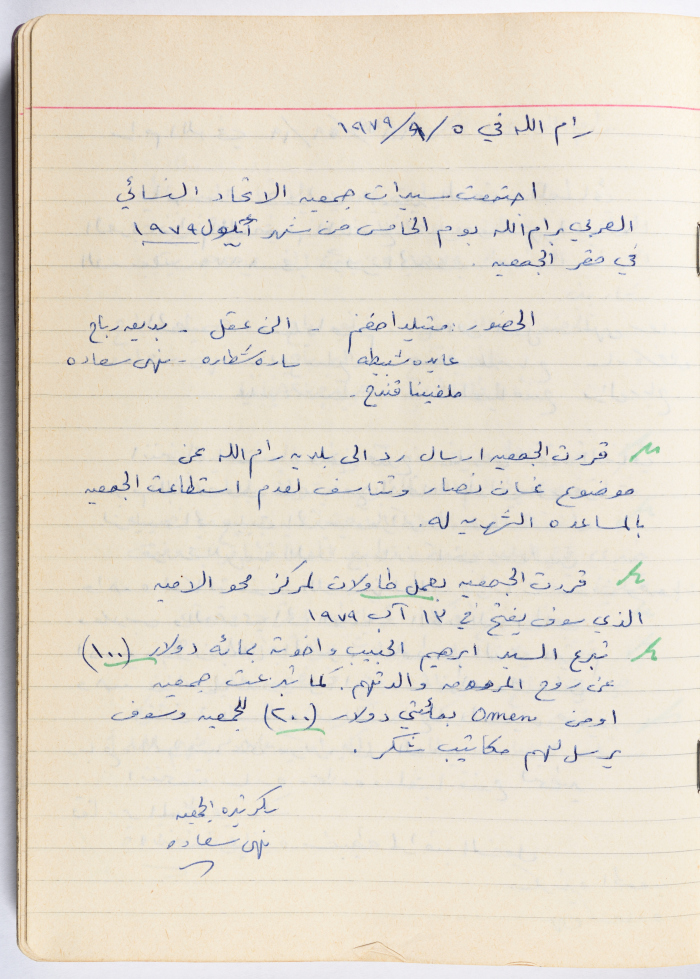 رام الله في ٥ /٩/ ١٩٧٩
اجتمعت سيدات جمعيه الاتحاد النسائي
العربي برام الله يوم الخامس من شهر أيلول ١٩٧٩
في مقر الجمعيه .
الحضور : متيليدا مغنم - الن عقل - بديعه رباح
عايده شبيطه ساره شطاره - نهى سعاده
ملفينا قندح .
قررت الجمعيه ارسال رد الى بلديه رام الله عن
موضوع غسان نصار وتتاسف لعدم استطاعت الجمعيه
بالمساعده الشهريه له.
قررت الجمعيه بعمل طاولات لمركز محو الاميه
الذي سوف يفتح في ١٣ آب ١٩٧٩
تبرع السيد ابرهيم الحبيب واخوته بمائه دولار (١٠٠)
عن روح المرحومه والدتهم . كما تبرعت جمعيه
اومن Omen بمائتي دولار (٢٠٠) للجمعيه وسوف
يرسل لهم مكاتيب شكر .
سكرتيره الجمعيه
نهى سعاده